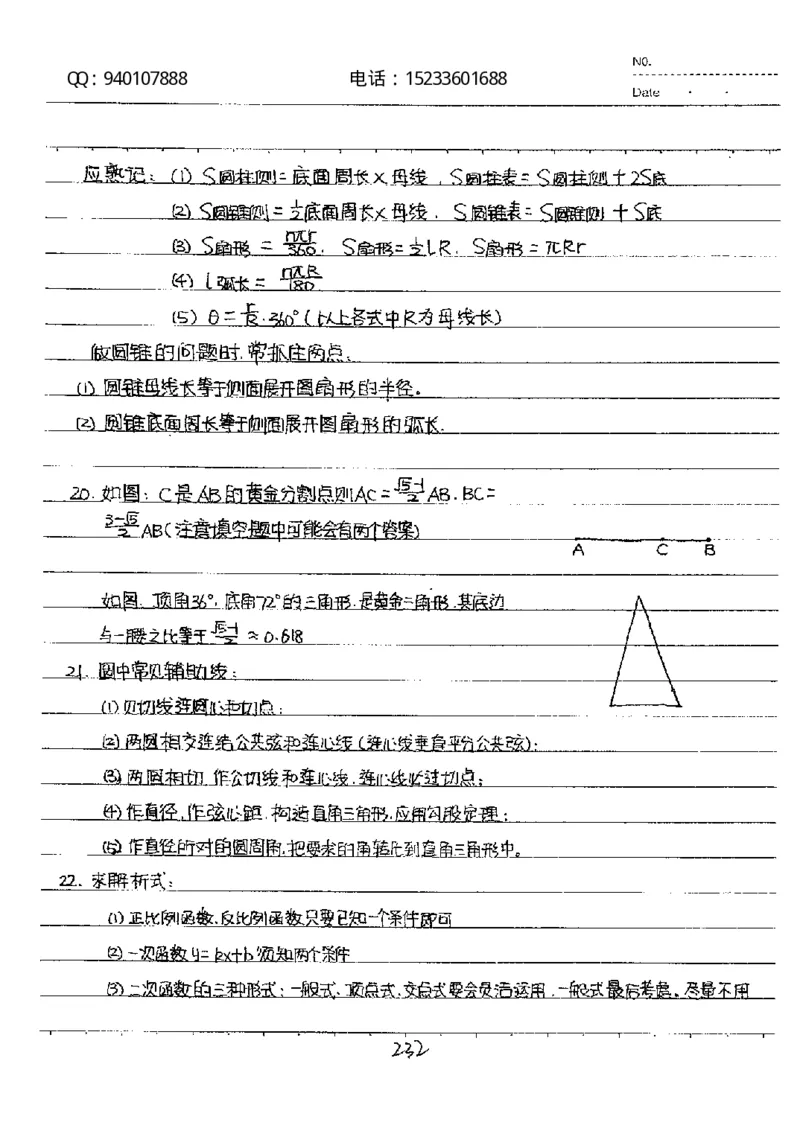 NO.
QQ：940107888 电话：15233601688
Date · ·
应熟记：(1) S圆柱侧=底面周长×母线，S圆柱表=S圆柱侧+2S底
(2) S圆锥侧=1/2底面周长×母线．S圆锥表=S圆锥侧+S底
(3) S扇形=nπr/360．S扇形=1/2LR．S扇形=πRr
(4) l弧长=nπR/180
(5) θ=r/R·360°(以上各式中R为母线长)
做圆锥的问题时，常抓住两点．
(1) 圆锥母线长等于侧面展开图扇形的半径。
(2) 圆锥底面周长等于侧面展开图扇形的弧长．
20．如图：C是AB的黄金分割点则AC=√5-1/2AB．BC=
3-√5/2AB(注意填空题中可能会有两个答案)
A C B
如图．顶角36°，底角72°的三角形，是黄金三角形．其底边
与一腰之比等于√5-1/2≈0.618
21．圆中常见辅助线：
(1)见切线连圆心和切点；
(2)两圆相交连结公共弦和连心线(连心线垂直平分公共弦)；
(3)两圆相切．作公切线和连心线．连心线必过切点；
(4)作直径，作弦心距．构造直角三角形，应用勾股定理；
(5)作直径所对的圆周角，把要求的角转化到直角三角形中。
22．求解析式：
(1)正比例函数、反比例函数只要已知一个条件即可
(2)一次函数y=kx+b须知两个条件
(3)二次函数的三种形式：一般式、顶点式、交点式要会灵活运用．一般式最后考虑。尽量不用
232